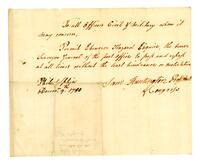 To all Officers Civil & Military whom it
may concern,
Permit Ebenezer Hazard Esquire, the
Surveyor General of the post offices to pass and repass
at all times without the least hindrance or molestation
Philadelphia
9th 1780
Sam Huntington President
of Congress